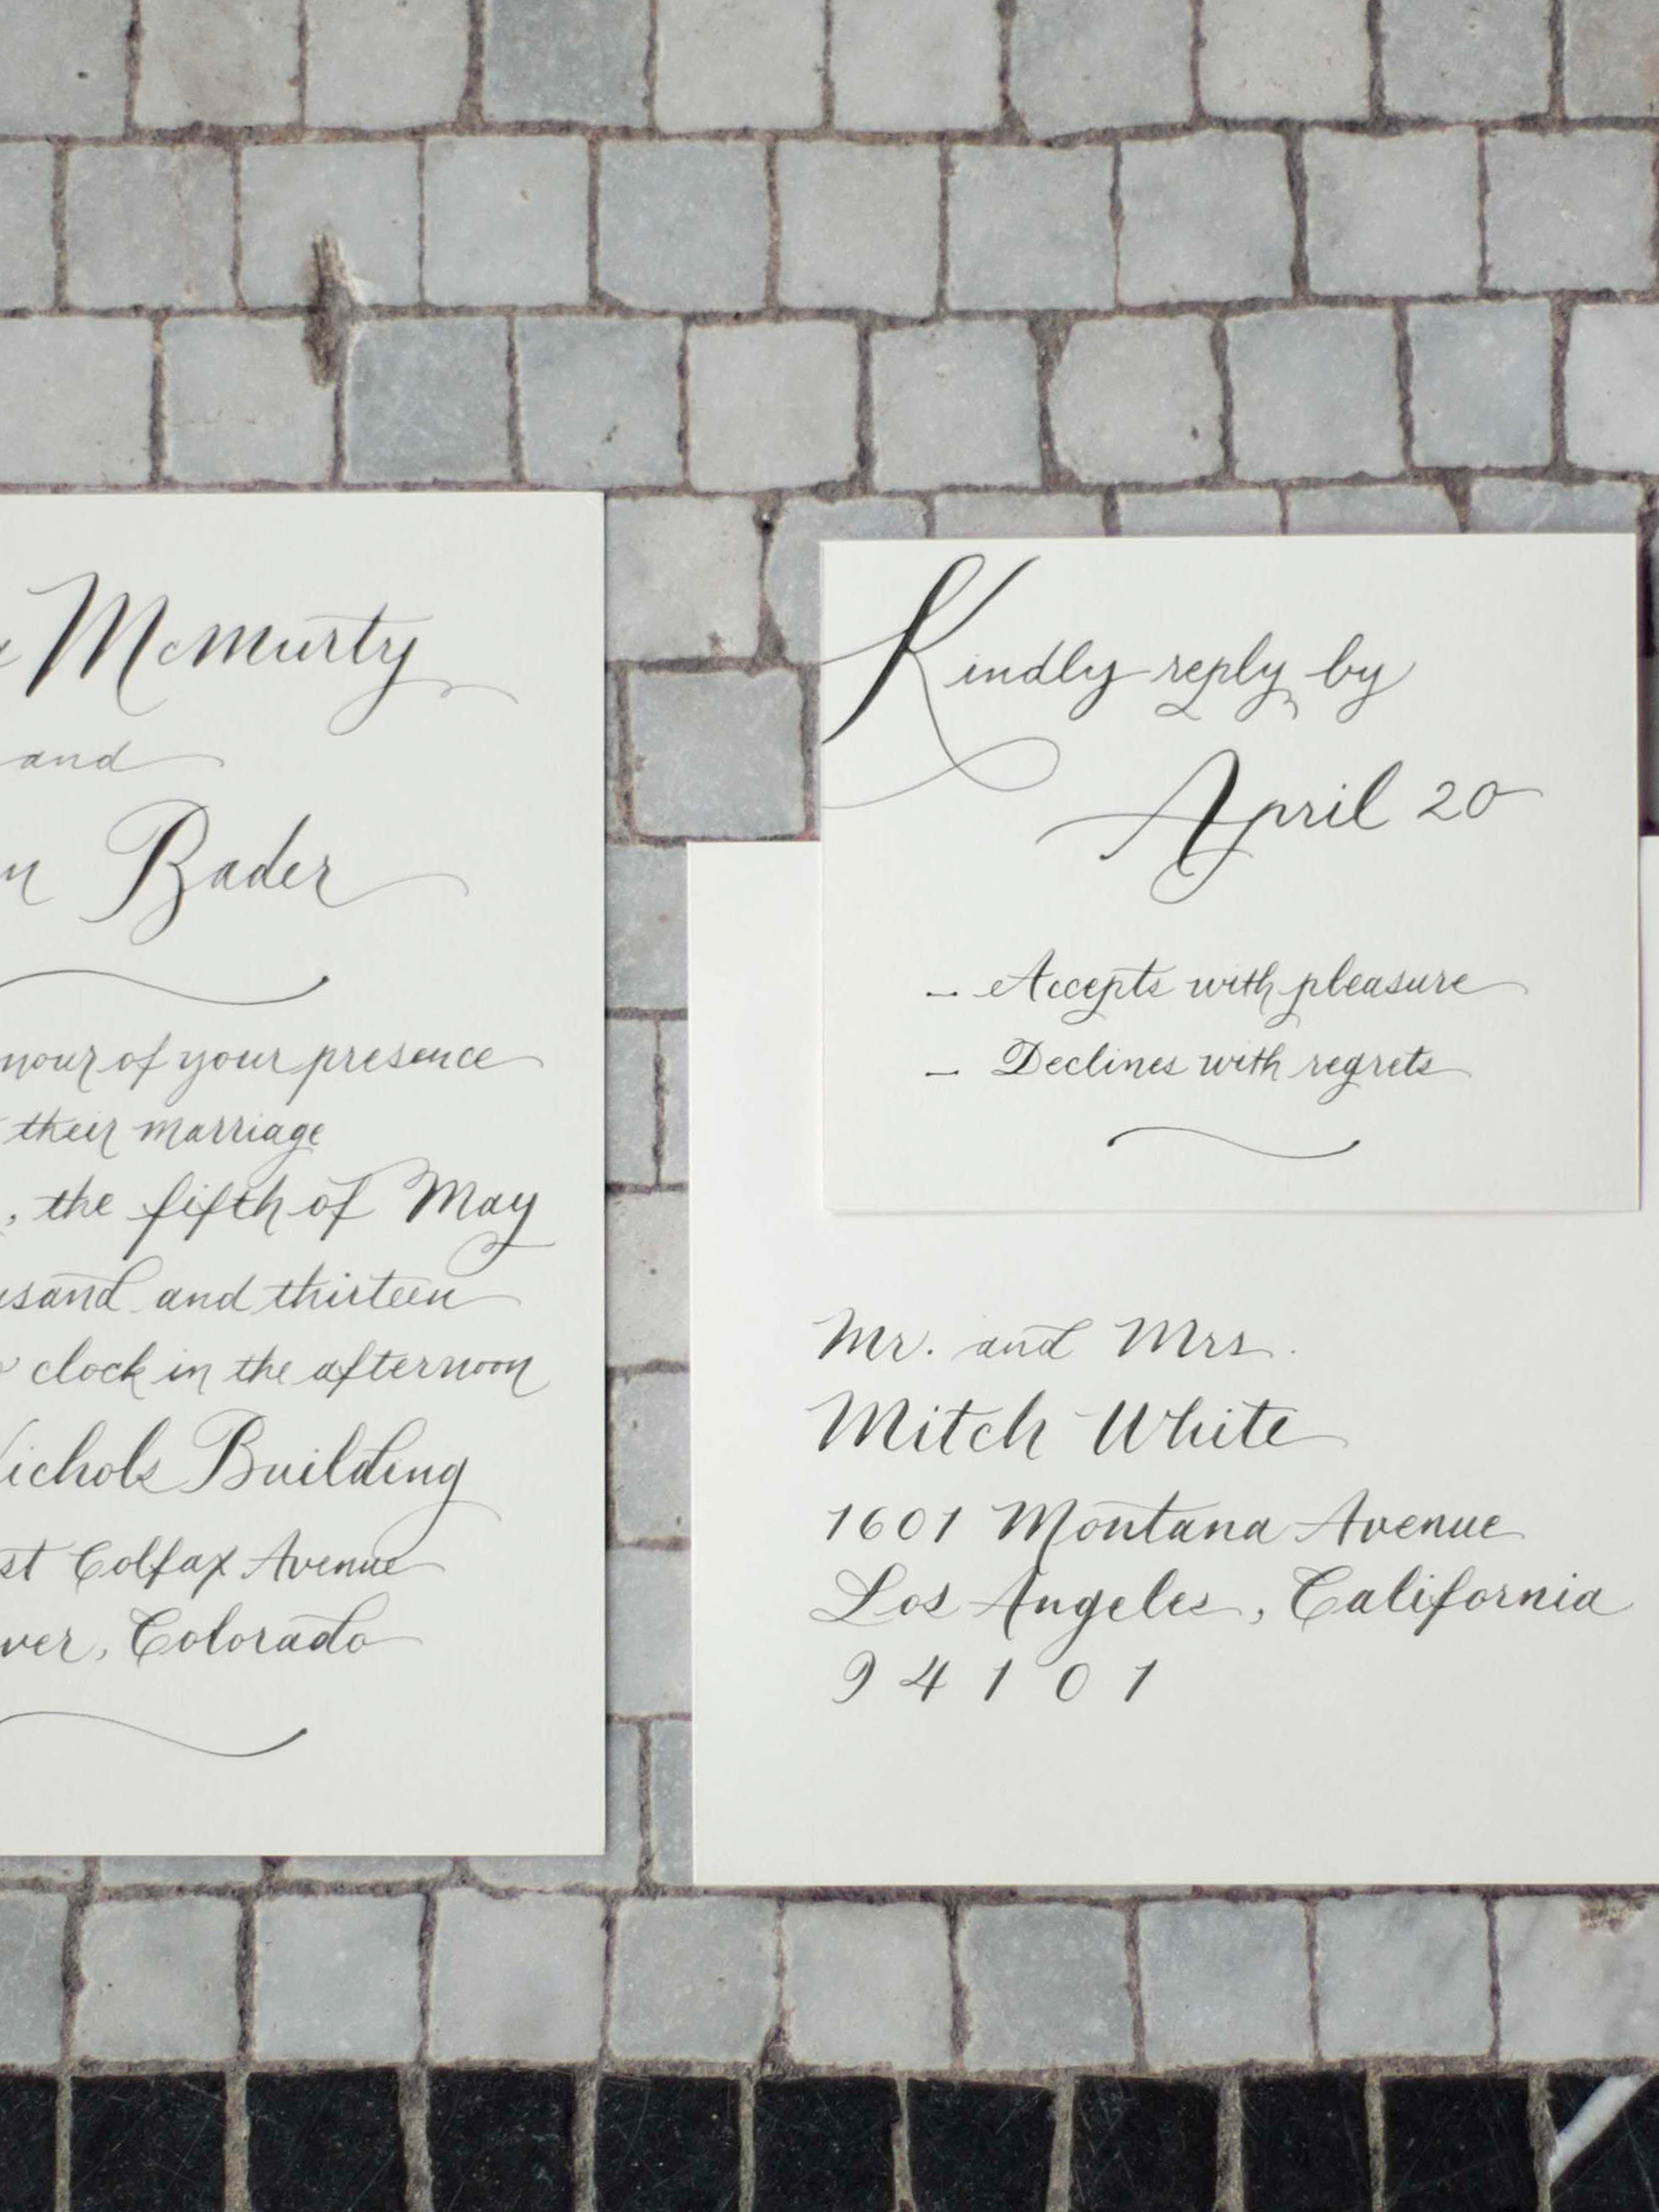 McMurty
and
Bader
of your presence
their marriage
, the fifth of May
and thirteen
clock in the afternoon
Building
Colfax Avenue
, Colorado
Kindly reply by
April 20
– Accepts with pleasure
– Declines with regrets
Mr. and Mrs.
Mitch White
1601 Montana Avenue
Los Angeles, California
94101